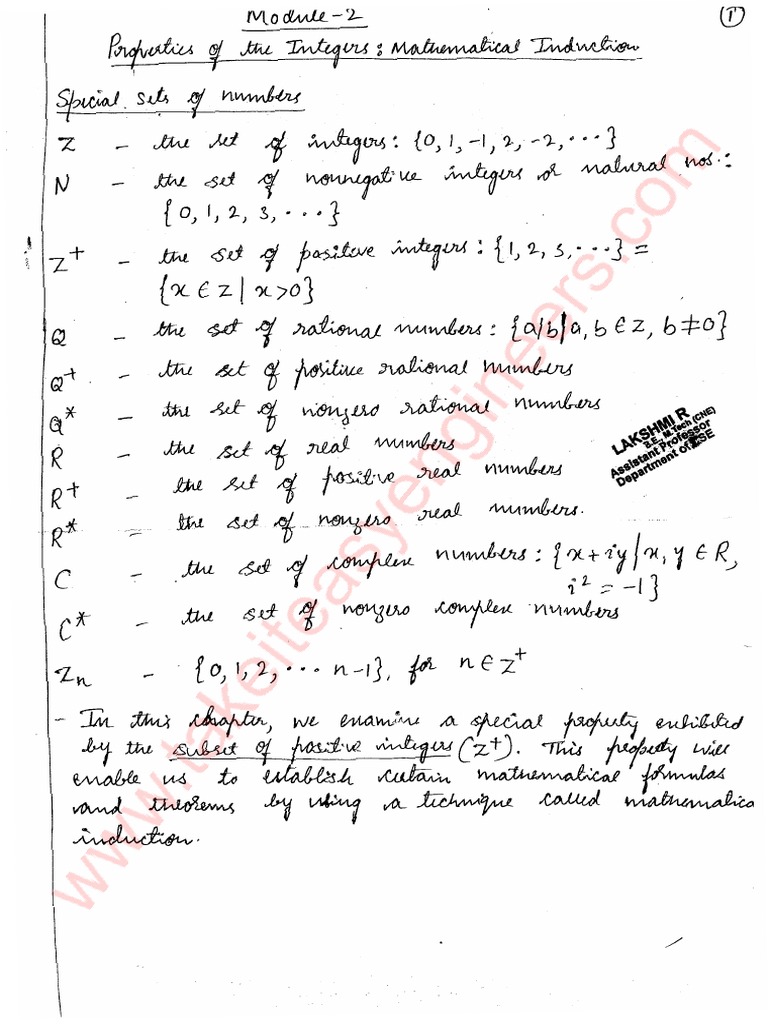 Module-2
①
Properties of the Integers: Mathematical Induction
Special sets of numbers
Z – the set of integers: {0, 1, -1, 2, -2, ...}
N – the set of nonnegative integers or natural nos.:
{0, 1, 2, 3, ...}
Z⁺ – the set of positive integers: {1, 2, 3, ...} =
{x ∈ Z | x > 0}
Q – the set of rational numbers: {a/b | a, b ∈ Z, b ≠ 0}
Q⁺ – the set of positive rational numbers
Q* – the set of nonzero rational numbers
R – the set of real numbers
R⁺ – the set of positive real numbers
R* – the set of nonzero real numbers.
C – the set of complex numbers: {x + iy | x, y ∈ R,
i² = -1}
C* – the set of nonzero complex numbers
Zn – {0, 1, 2, ... n-1}, for n ∈ Z⁺
– In this chapter, we examine a special property exhibited
by the subset of positive integers (Z⁺). This property will
enable us to establish certain mathematical formulas
and theorems by using a technique called mathematica
induction.
LAKSHMI R
B.E., M.Tech (CNE)
Assistant Professor
Department of ISE
www.takeiteasyengineers.com